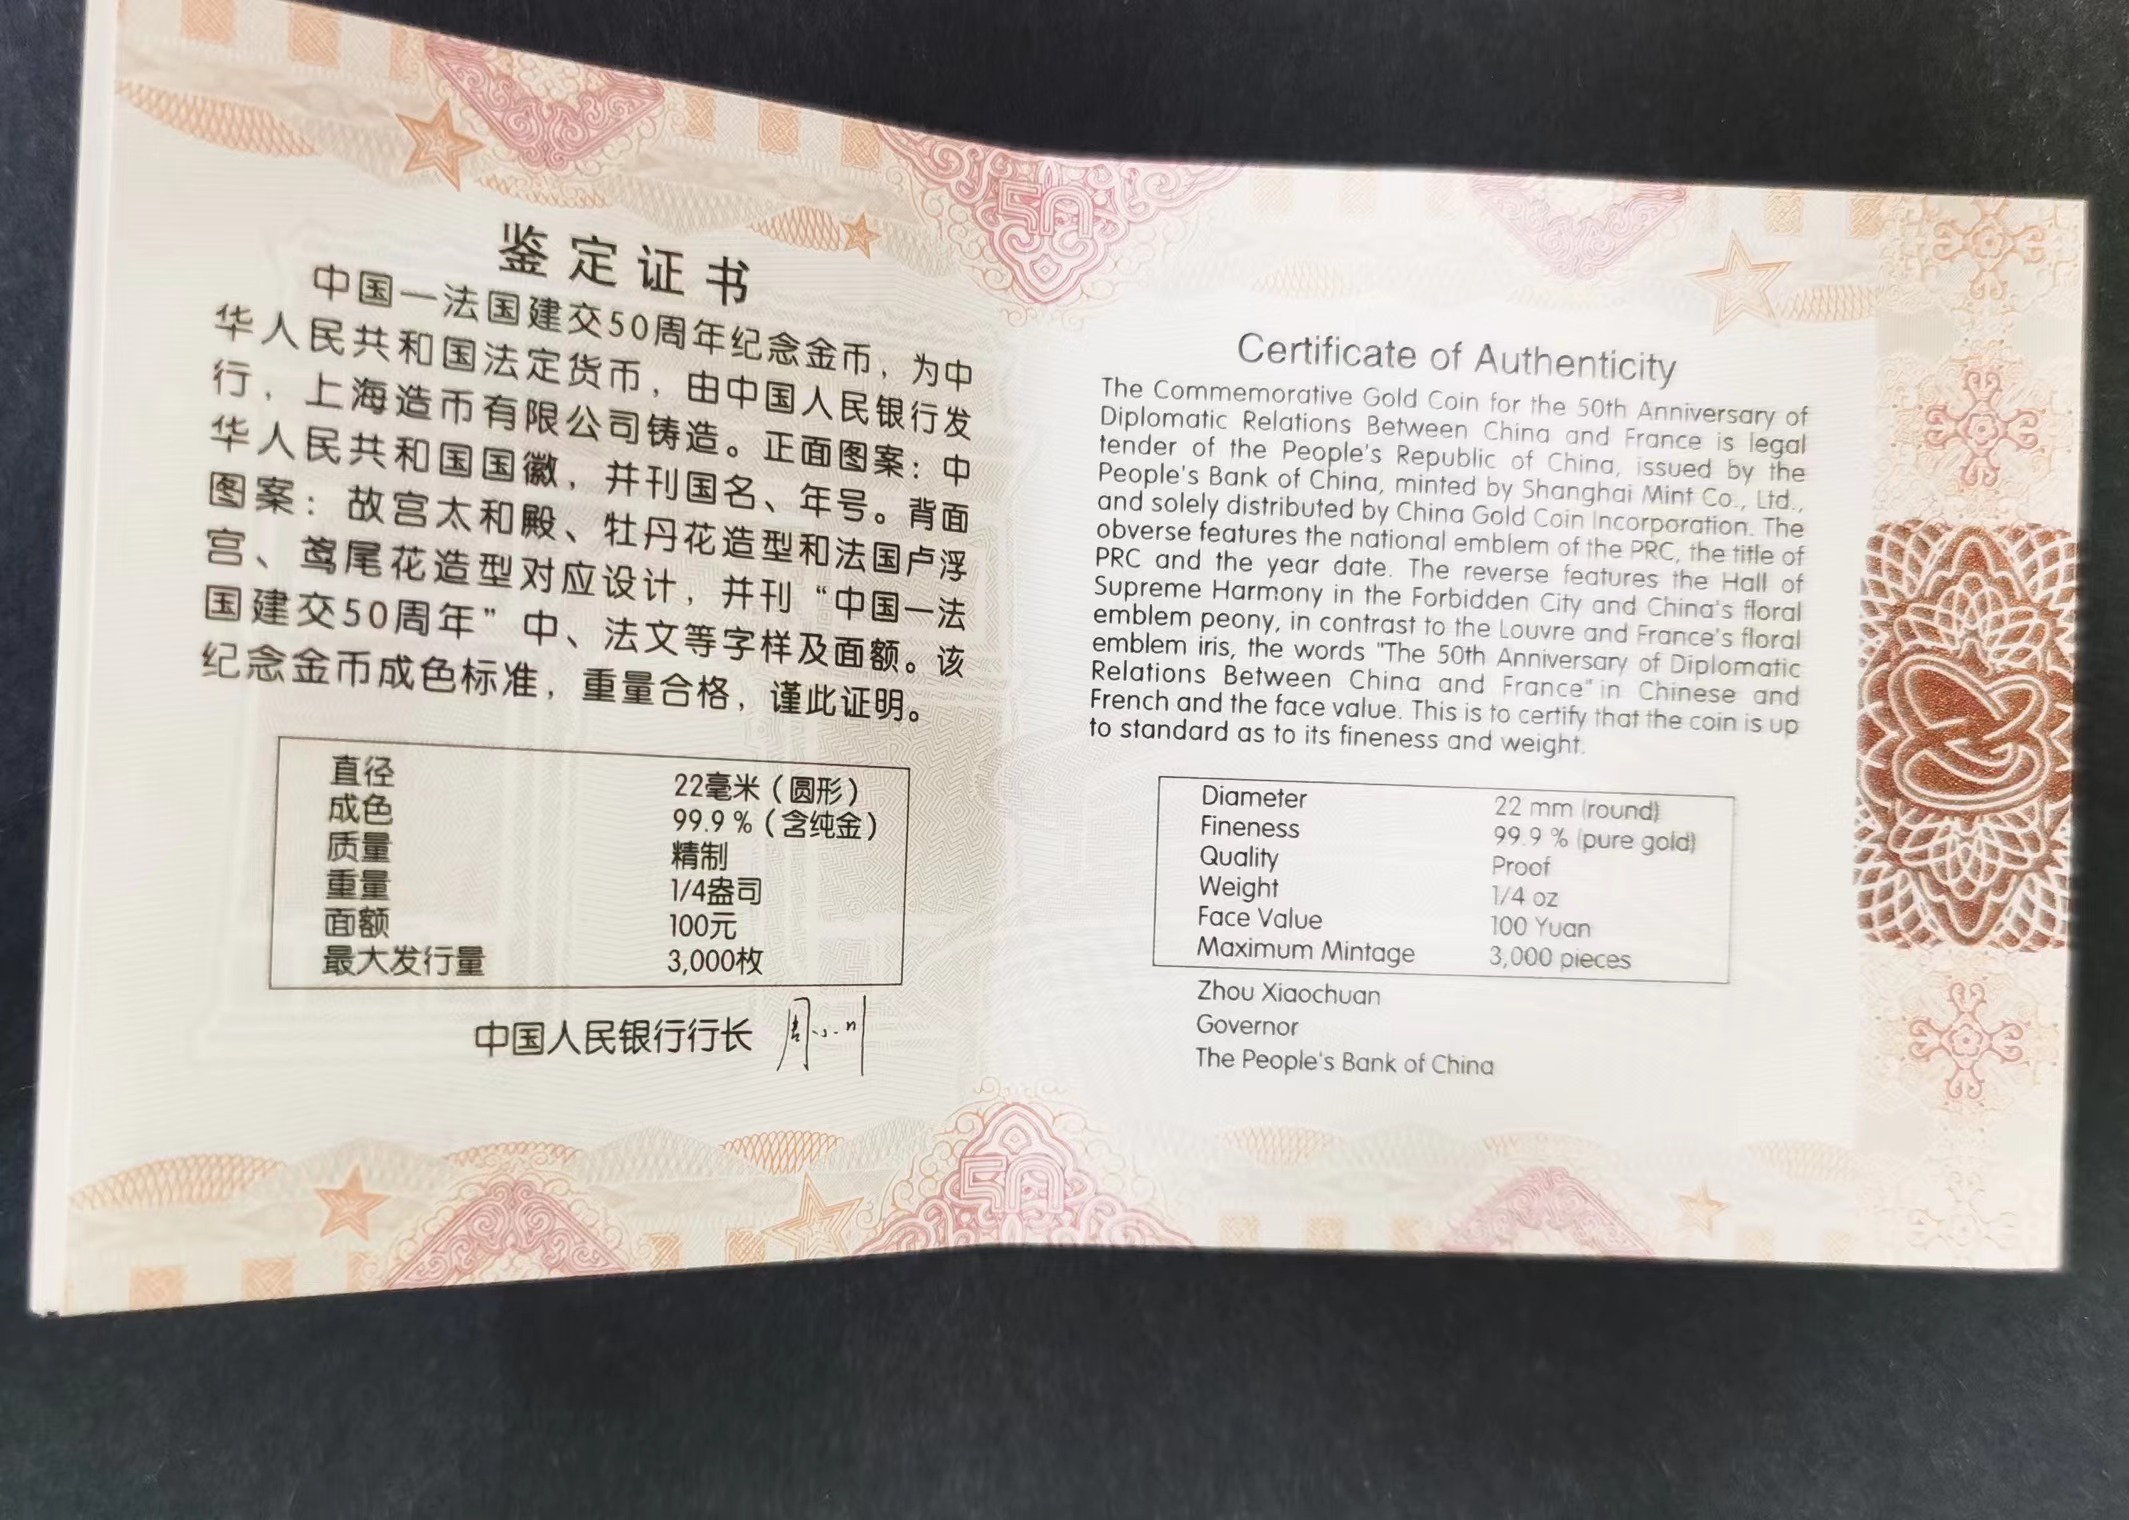 鉴定证书
中国一法国建交50周年纪念金币，为中
华人民共和国法定货币，由中国人民银行发
行，上海造币有限公司铸造。正面图案：中
华人民共和国国徽，并刊国名、年号。背面
图案：故宫太和殿、牡丹花造型和法国卢浮
宫、鸢尾花造型对应设计，并刊“中国一法
国建交50周年”中、法文等字样及面额。该
纪念金币成色标准，重量合格，谨此证明。
直径 22毫米（圆形）
成色 99.9%（含纯金）
质量 精制
重量 1/4盎司
面额 100元
最大发行量 3,000枚
中国人民银行行长 周小川
50
Certificate of Authenticity
The Commemorative Gold Coin for the 50th Anniversary of
Diplomatic Relations Between China and France is legal
tender of the People's Republic of China, issued by the
People's Bank of China, minted by Shanghai Mint Co., Ltd.,
and solely distributed by China Gold Coin Incorporation. The
obverse features the national emblem of the PRC, the title of
PRC and the year date. The reverse features the Hall of
Supreme Harmony in the Forbidden City and China's floral
emblem peony, in contrast to the Louvre and France's floral
emblem iris, the words "The 50th Anniversary of Diplomatic
Relations Between China and France" in Chinese and
French and the face value. This is to certify that the coin is up
to standard as to its fineness and weight.
Diameter 22 mm (round)
Fineness 99.9 % (pure gold)
Quality Proof
Weight 1/4 oz
Face Value 100 Yuan
Maximum Mintage 3,000 pieces
Zhou Xiaochuan
Governor
The People's Bank of China
50